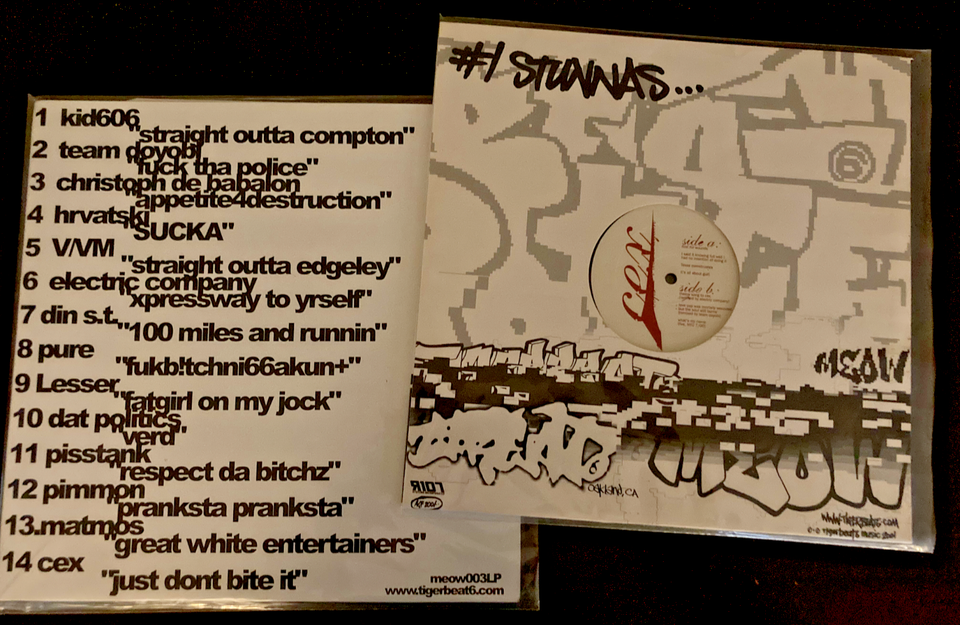 1 kid606
"straight outta compton"
2 team doyobi
"fuck tha police"
3 christoph de babalon
"appetite4destruction"
4 hrvatski
"SUCKA"
5 V/VM
"straight outta edgeley"
6 electric company
"xpressway to yrself"
7 din s.t.
"100 miles and runnin"
8 pure
"fukb!tchni66akun+"
9 Lesser
"fatgirl on my jock"
10 dat politics
"verd"
11 pisstank
"respect da bitchz"
12 pimmon
"pranksta pranksta"
13.matmos
"great white entertainers"
14 cex
"just dont bite it"
meow003LP
www.tigerbeat6.com
#1 STUNNAS...
6
cex
side a:
side b:
MEOW
MEOW
RIOT
Oakland, CA
www.tigerbeat6.com